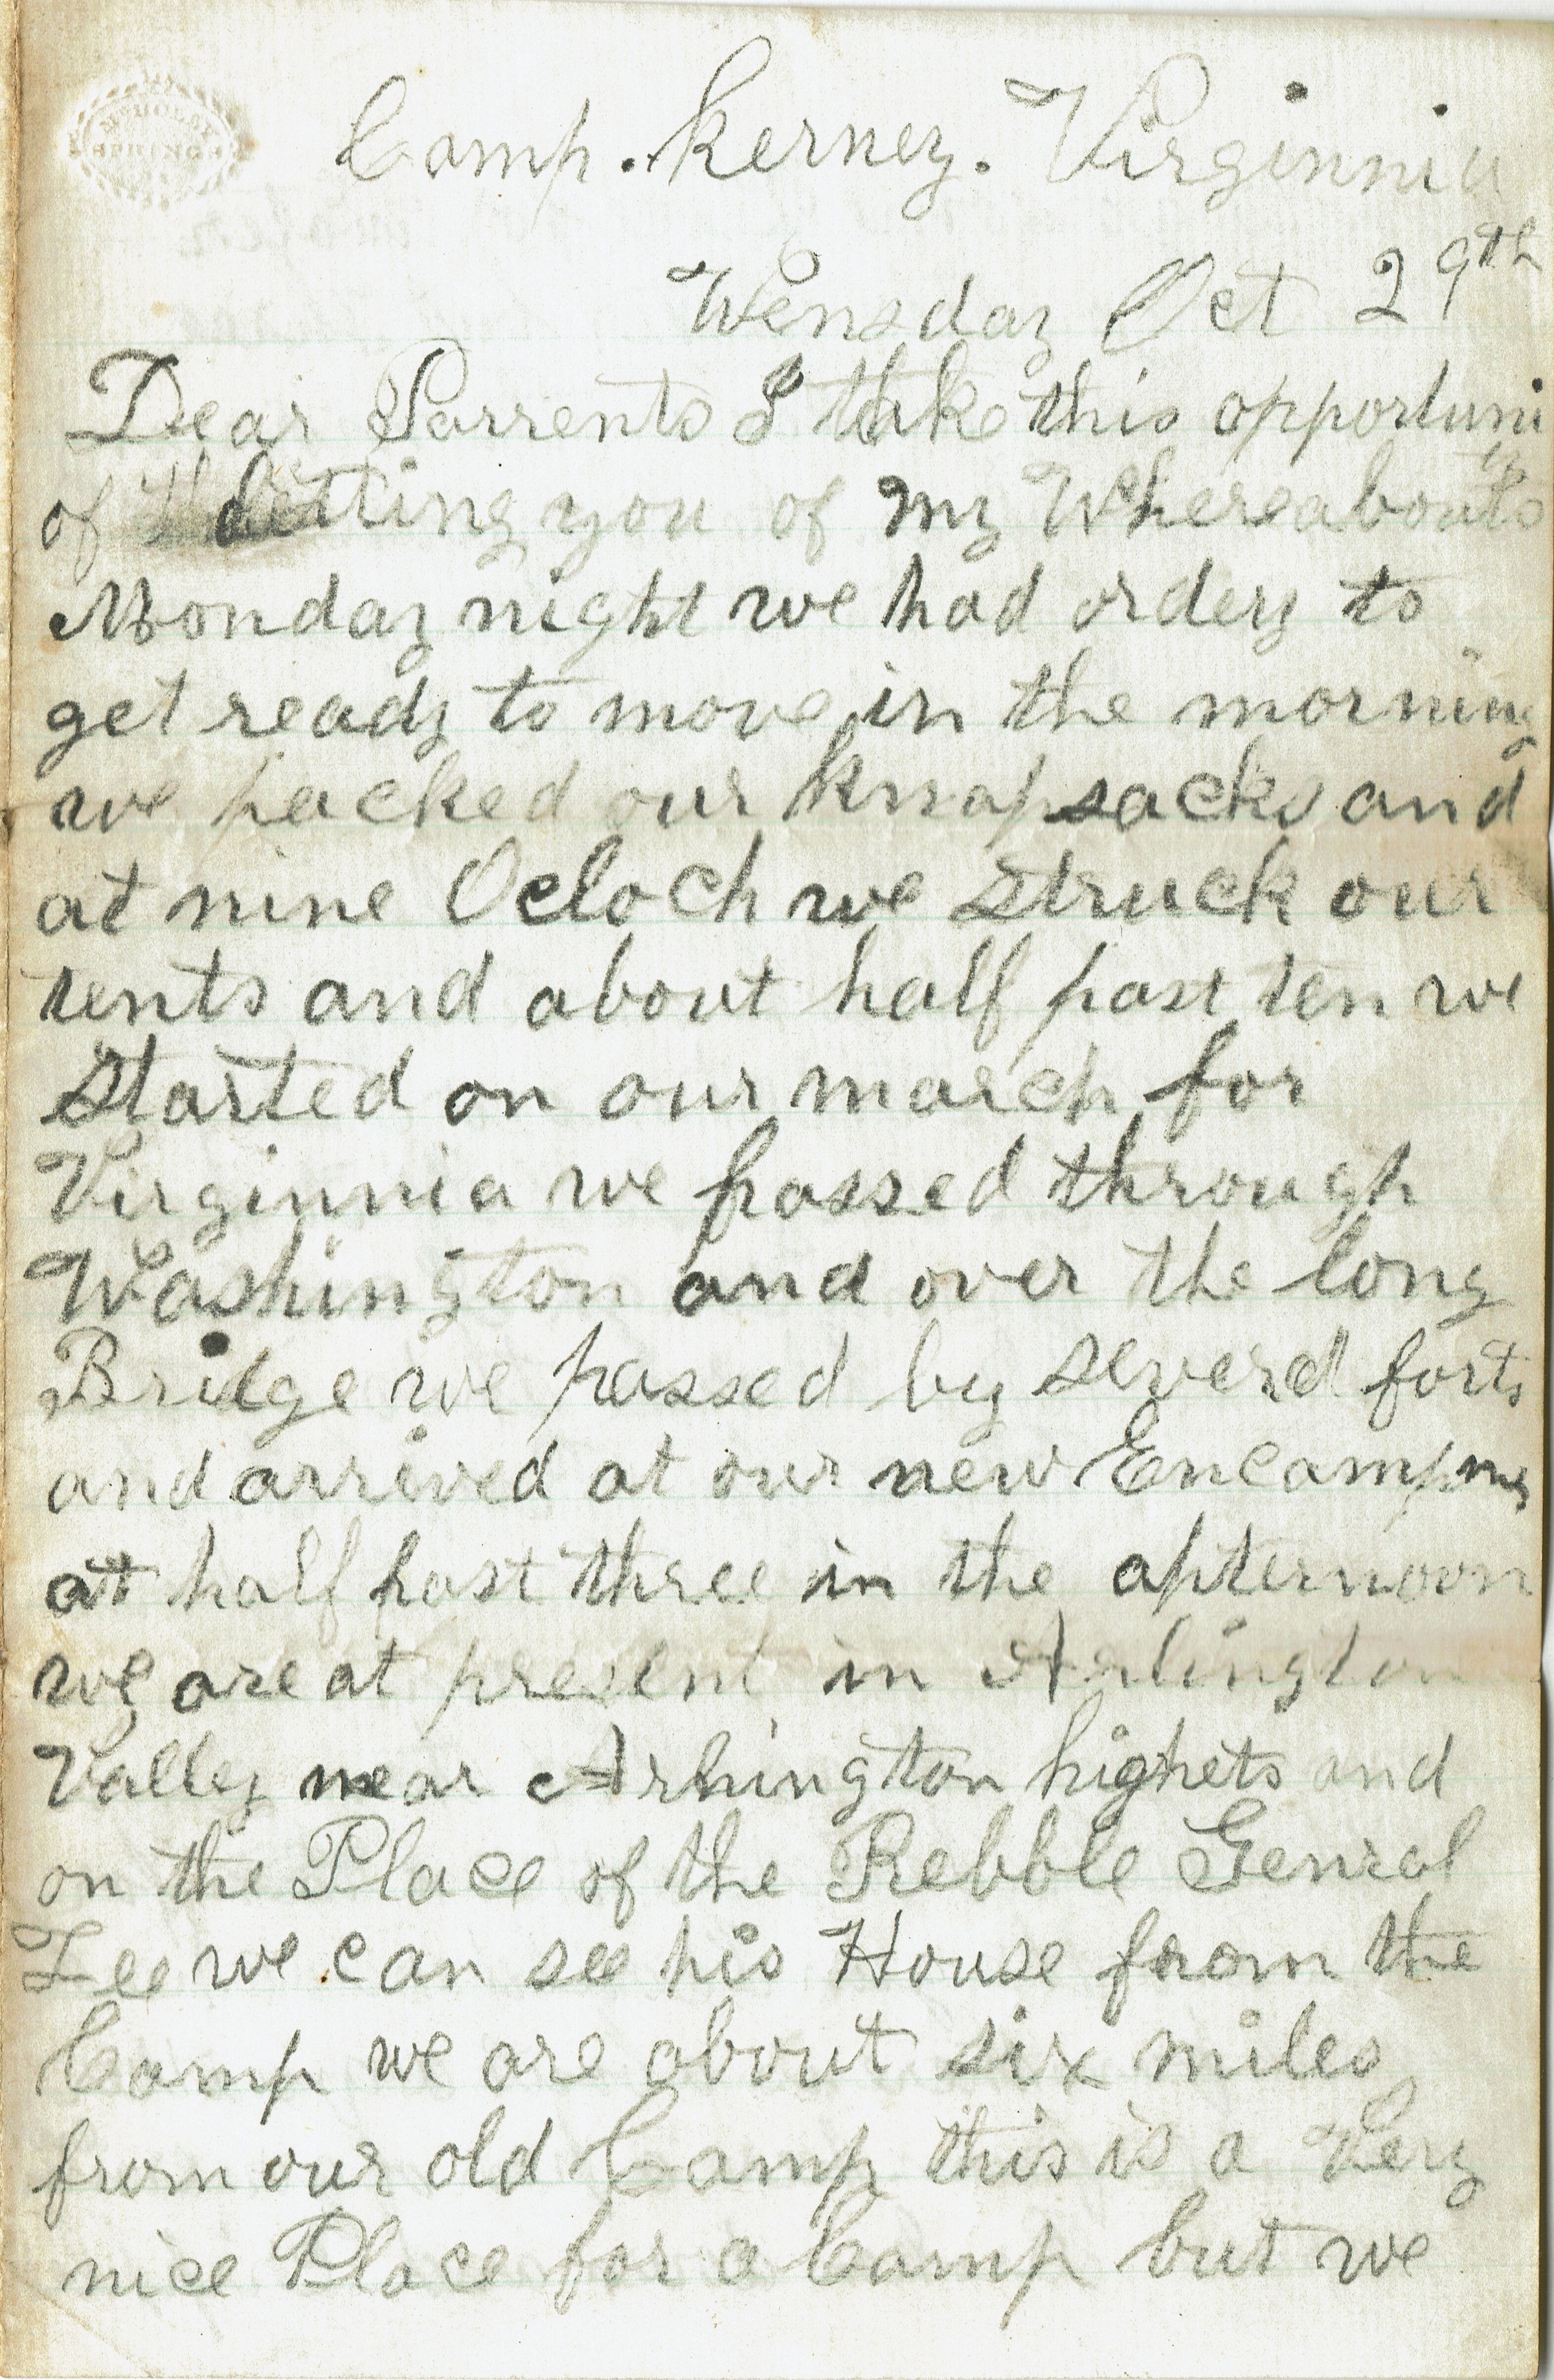 Camp. Kerney. Virginnia
Wensday Oct 29th
Dear Parrents I take this opportuni
ty
of letting you of my Whereabouts
Monday night we had orders to
get ready to move in the morning
we packed our knapsacks and
at nine Ocloch we struck our
tents and about half past ten we
started on our march for
Virginnia we passed through
Washington and over the long
Bridge we passed by several forts
and arrived at our new
at half past three in the afternoon
we are at present in Arlington
Valley near Arlington highets and
on the Place of the Rebble Genral
Lee we can see his House from the
Camp we are about six miles
from our old Camp this is a Very
nice Place for a Camp but we